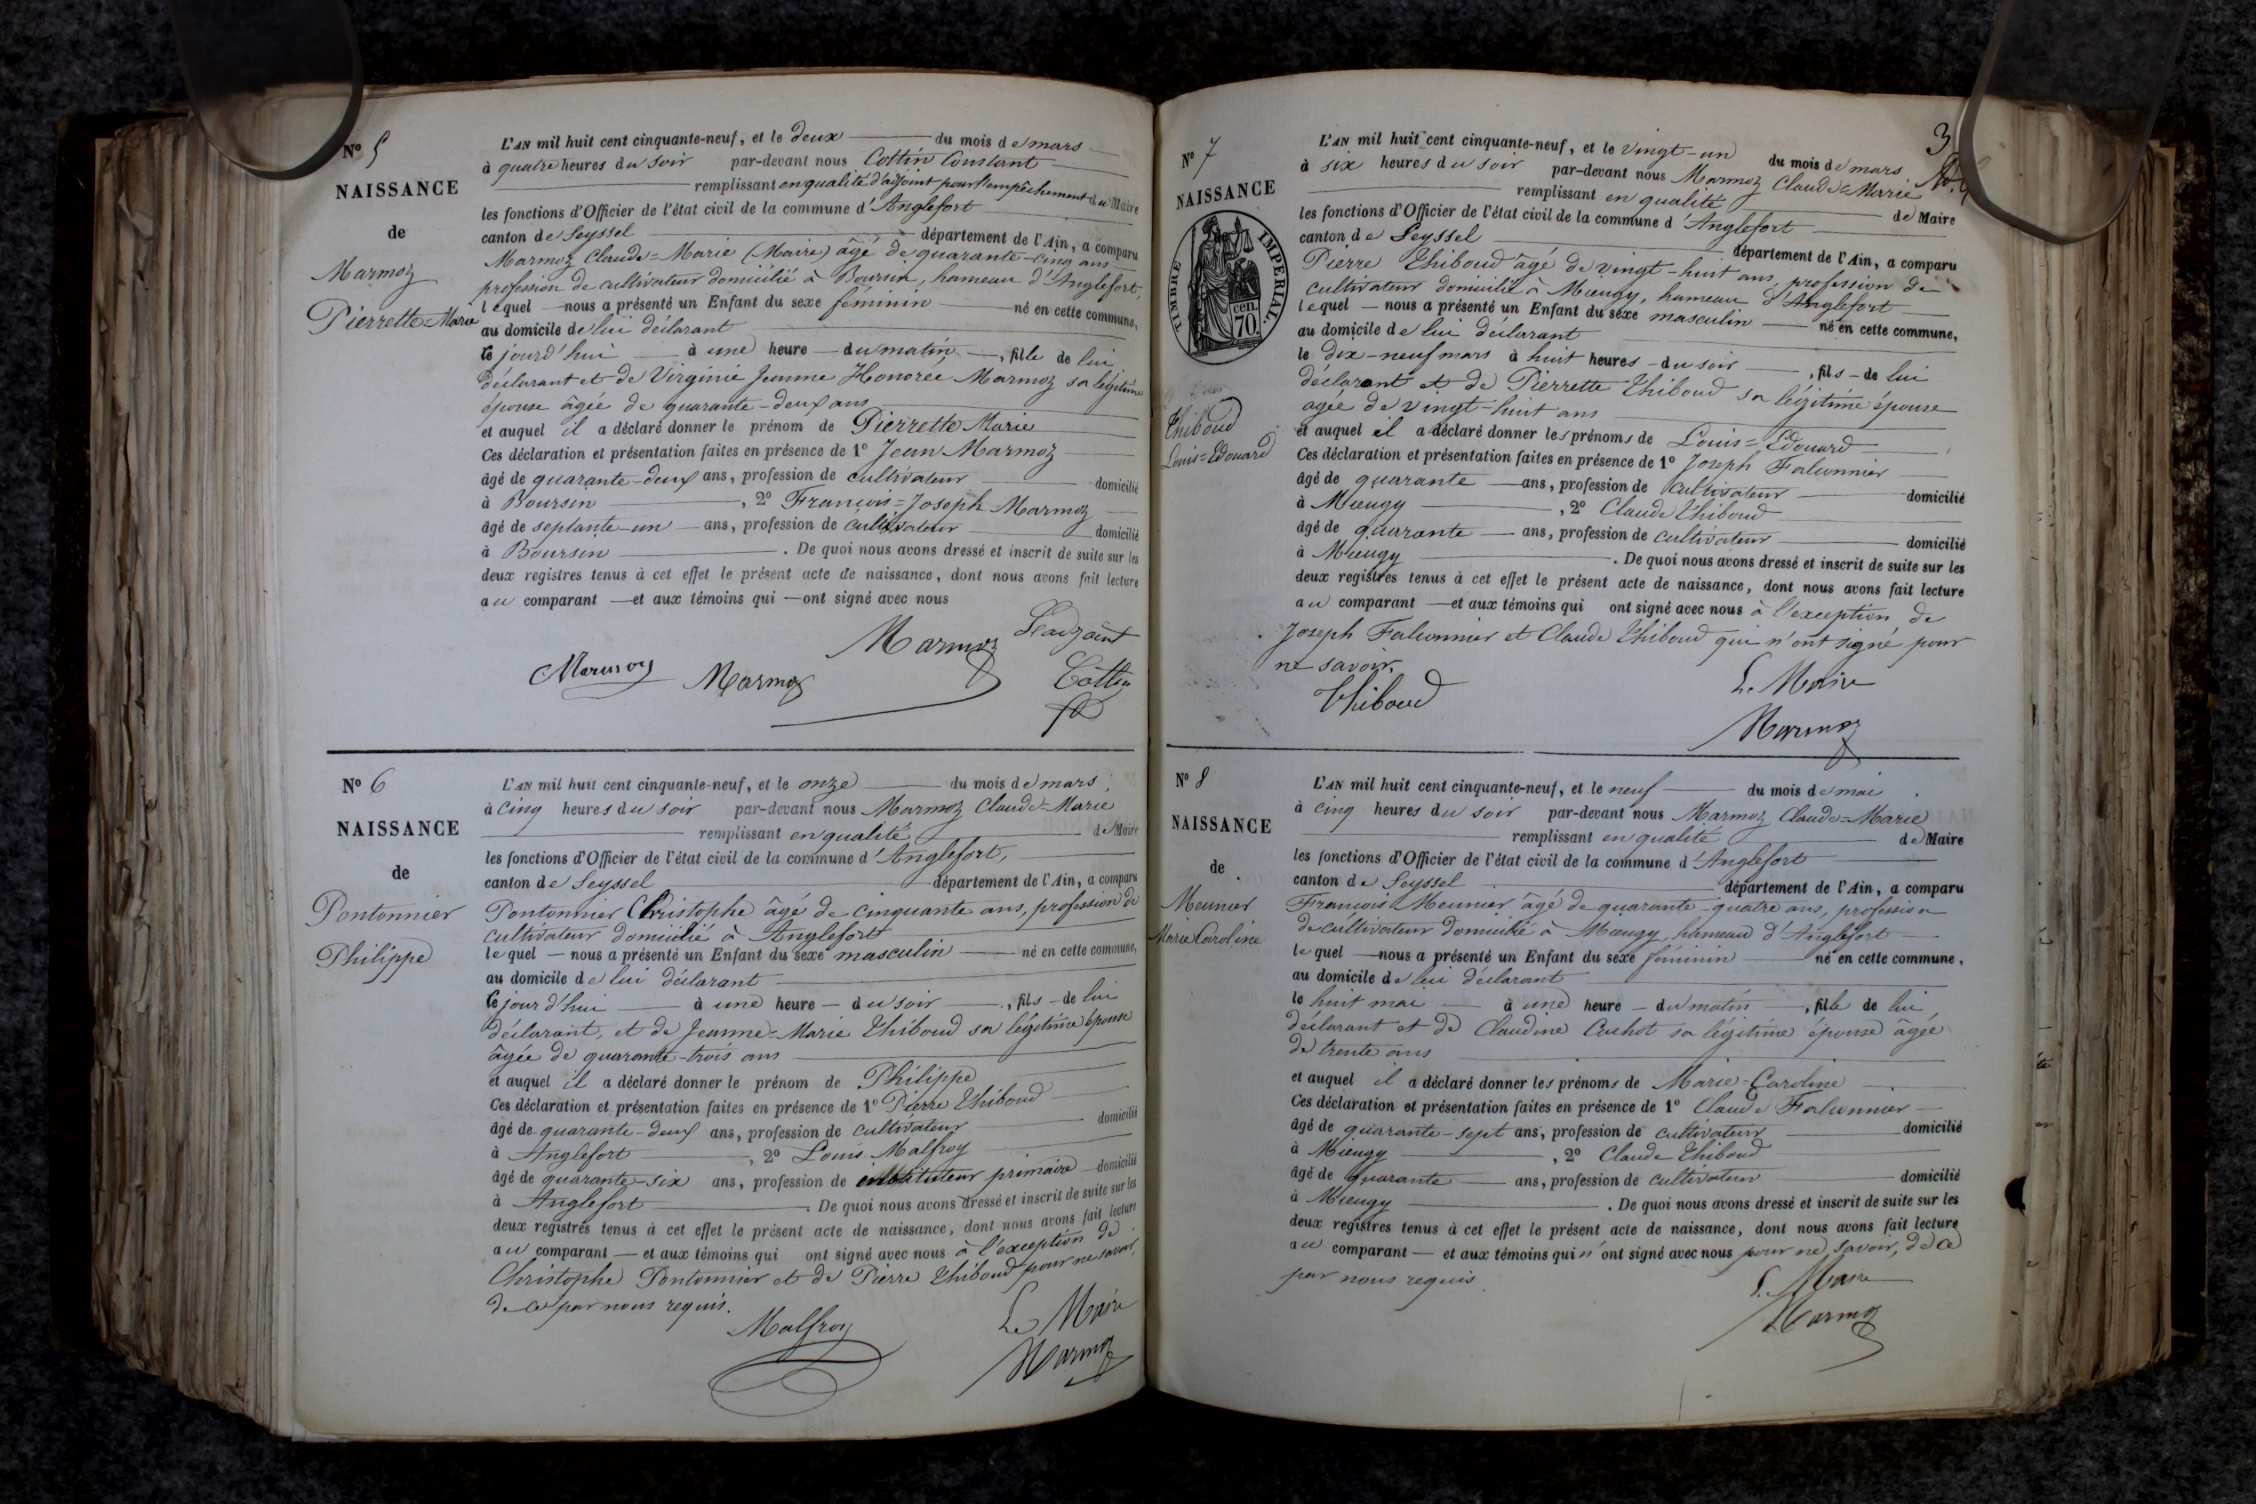 N° 5
NAISSANCE
de
Marmoz
Pierrette=Marie
L'AN mil huit cent cinquante-neuf, et le deux du mois de mars
à quatre heures du soir par-devant nous Cottin Constant
remplissant en qualité d'adjoint pour l'empêchement du Maire
les fonctions d'Officier de l'état civil de la commune d'Anglefort
canton de Seyssel département de l'Ain, a comparu
Marmoz Claude=Marie (Maire) âgé de quarante-cinq ans
profession de cultivateur domicilié à Boursin, hameau d'Anglefort,
lequel nous a présenté un Enfant du sexe féminin né en cette commune,
au domicile de lui déclarant
ce jourd'hui à une heure du matin, fille de lui
déclarant et de Virginie Jeanne Honorée Marmoz sa légitime
épouse âgée de quarante-deux ans
et auquel il a déclaré donner le prénom de Pierrette Marie
Ces déclaration et présentation faites en présence de 1° Jean Marmoz
âgé de quarante-deux ans, profession de cultivateur domicilié
à Boursin, 2° François=Joseph Marmoz
âgé de septante-un ans, profession de cultivateur domicilié
à Boursin. De quoi nous avons dressé et inscrit de suite sur les
deux registres tenus à cet effet le présent acte de naissance, dont nous avons fait lecture
au comparant et aux témoins qui ont signé avec nous
L'adjoint
Marmoz
Marmoz
Marmoz
Cottin
N° 6
NAISSANCE
de
Pontonnier
Philippe
L'AN mil huit cent cinquante-neuf, et le onze du mois de mars,
à cinq heures du soir par-devant nous Marmoz Claude=Marie
remplissant en qualité de Maire
les fonctions d'Officier de l'état civil de la commune d'Anglefort,
canton de Seyssel département de l'Ain, a comparu
Pontonnier Christophe âgé de cinquante ans, profession de
cultivateur domicilié à Anglefort
lequel nous a présenté un Enfant du sexe masculin né en cette commune,
au domicile de lui déclarant
ce jour d'hui à une heure du soir, fils de lui
déclarant, et de Jeanne-Marie Thiboud sa légitime épouse
âgée de quarante-trois ans
et auquel il a déclaré donner le prénom de Philippe
Ces déclaration et présentation faites en présence de 1° Pierre Thiboud
âgé de quarante-deux ans, profession de cultivateur domicilié
à Anglefort, 2° Louis Malfroy
âgé de quarante-six ans, profession de instituteur primaire domicilié
à Anglefort. De quoi nous avons dressé et inscrit de suite sur les
deux registres tenus à cet effet le présent acte de naissance, dont nous avons fait lecture
au comparant et aux témoins qui ont signé avec nous à l'exception de
Christophe Pontonnier et de Pierre Thiboud pour ne savoir,
de ce par nous requis.
Malfroy
Le Maire
Marmoz
3
N° 7
NAISSANCE
TIMBRE IMPERIAL
70 cen.
Thiboud
Louis=Edouard
L'AN mil huit cent cinquante-neuf, et le vingt-un du mois de mars
à six heures du soir par-devant nous Marmoz Claude=Marie
remplissant en qualité de Maire
les fonctions d'Officier de l'état civil de la commune d'Anglefort
canton de Seyssel département de l'Ain, a comparu
Pierre Thiboud âgé de vingt-huit ans, profession de
cultivateur domicilié à Mœugy, hameau d'Anglefort
lequel nous a présenté un Enfant du sexe masculin né en cette commune,
au domicile de lui déclarant
le dix-neuf mars à huit heures du soir, fils de lui
déclarant et de Pierrette Thiboud sa légitime épouse
agée de vingt-huit ans
et auquel il a déclaré donner les prénoms de Louis=Edouard
Ces déclaration et présentation faites en présence de 1° Joseph Falconnier
âgé de quarante ans, profession de cultivateur domicilié
à Mœugy, 2° Claude Thiboud
âgé de quarante ans, profession de cultivateur domicilié
à Mœugy. De quoi nous avons dressé et inscrit de suite sur les
deux registres tenus à cet effet le présent acte de naissance, dont nous avons fait lecture
au comparant et aux témoins qui ont signé avec nous à l'exception de
Joseph Falconnier et Claude Thiboud qui n'ont signé pour
ne savoir.
Thiboud
Le Maire
Marmoz
N° 8
NAISSANCE
de
Meunier
Marie Caroline
L'AN mil huit cent cinquante-neuf, et le neuf du mois de mai
à cinq heures du soir par-devant nous Marmoz Claude=Marie
remplissant en qualité de Maire
les fonctions d'Officier de l'état civil de la commune d'Anglefort
canton de Seyssel département de l'Ain, a comparu
François Meunier âgé de quarante-quatre ans, profession
de cultivateur domicilié à Mœugy, hameau d'Anglefort
lequel nous a présenté un Enfant du sexe féminin né en cette commune,
au domicile de lui déclarant
le huit mai à une heure du matin, fille de lui
déclarant et de Claudine Cachot sa légitime épouse âgée
de trente ans
et auquel il a déclaré donner les prénoms de Marie=Caroline
Ces déclaration et présentation faites en présence de 1° Claude Falconnier
âgé de quarante-sept ans, profession de cultivateur domicilié
à Mœugy, 2° Claude Thiboud
âgé de quarante ans, profession de cultivateur domicilié
à Mœugy. De quoi nous avons dressé et inscrit de suite sur les
deux registres tenus à cet effet le présent acte de naissance, dont nous avons fait lecture
au comparant et aux témoins qui n'ont signé avec nous pour ne savoir, de ce
par nous requis
Le Maire
Marmoz